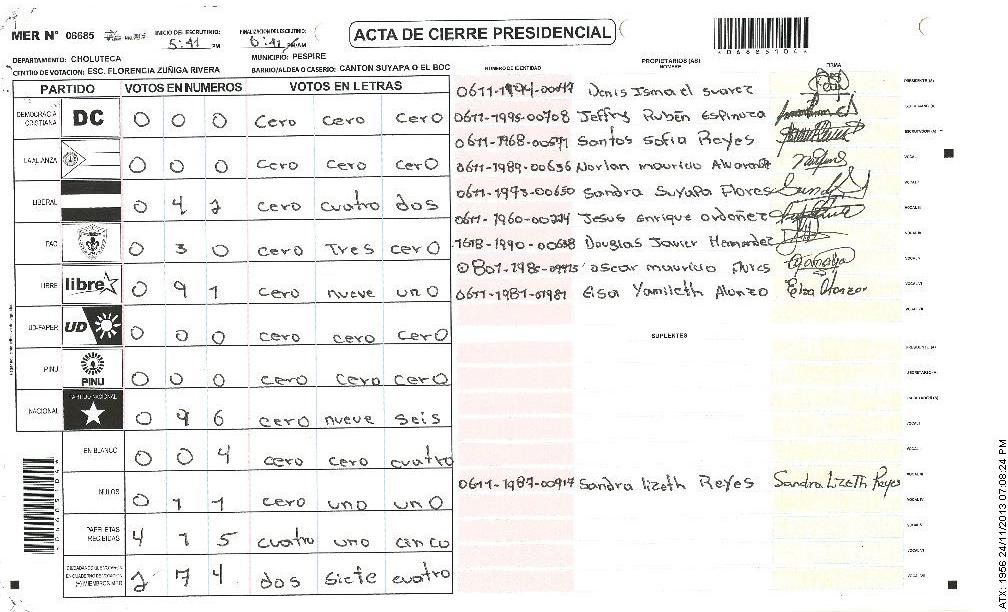 MER N° 06685
INICIO DEL ESCRUTINIO:
5:41 PM
FINALIZACION DE ESCRUTINIO:
6:41 PM/AM
ACTA DE CIERRE PRESIDENCIAL
DEPARTAMENTO: CHOLUTECA
MUNICIPIO: PESPIRE
CENTRO DE VOTACION: ESC. FLORENCIA ZUÑIGA RIVERA
BARRIO/ALDEA O CASERIO: CANTON SUYAPA O EL BOC
PARTIDO VOTOS EN NUMEROS VOTOS EN LETRAS
DEMOCRACIA CRISTIANA DC 0 0 0 cero cero cero
LA ALIANZA 0 0 0 cero cero cero
LIBERAL 0 4 2 cero cuatro dos
PAC 0 3 0 cero Tres cero
LIBRE libre 0 9 1 cero nueve uno
UD-FAPER UD 0 0 0 cero cero cero
PINU PINU 0 0 0 cero cero cero
NACIONAL PARTIDO NACIONAL 0 9 6 cero nueve seis
EN BLANCO 0 0 4 cero cero cuatro
NULOS 0 1 1 cero uno uno
PAPELETAS RECIBIDAS 4 1 5 cuatro uno cinco
2 7 4 dos siete cuatro
NUMERO DE IDENTIDAD
PROPIETARIOS (AS)
NOMBRE
FIRMA
Denis Ismael Suarez
0611-1995-00708 Jeffry Rubén Espinoza
0611-1968-00571 Santos Sofia Reyes
0611-1989-00636 Norlan mauricio Alvarado
0611-1993-00650 Sandra Suyapa Flores
0611-1960-00224 Jesus enrique ordoñez
Douglas Javier Hernandez
oscar mauricio flores
0611-1981-01981 Elsa Yamileth Alonzo
SUPLENTES
0611-1987-00917 Sandra lizeth Reyes Sandra Lizeth Reyes
ATX: 1956 24/11/2013 07:08:24 PM